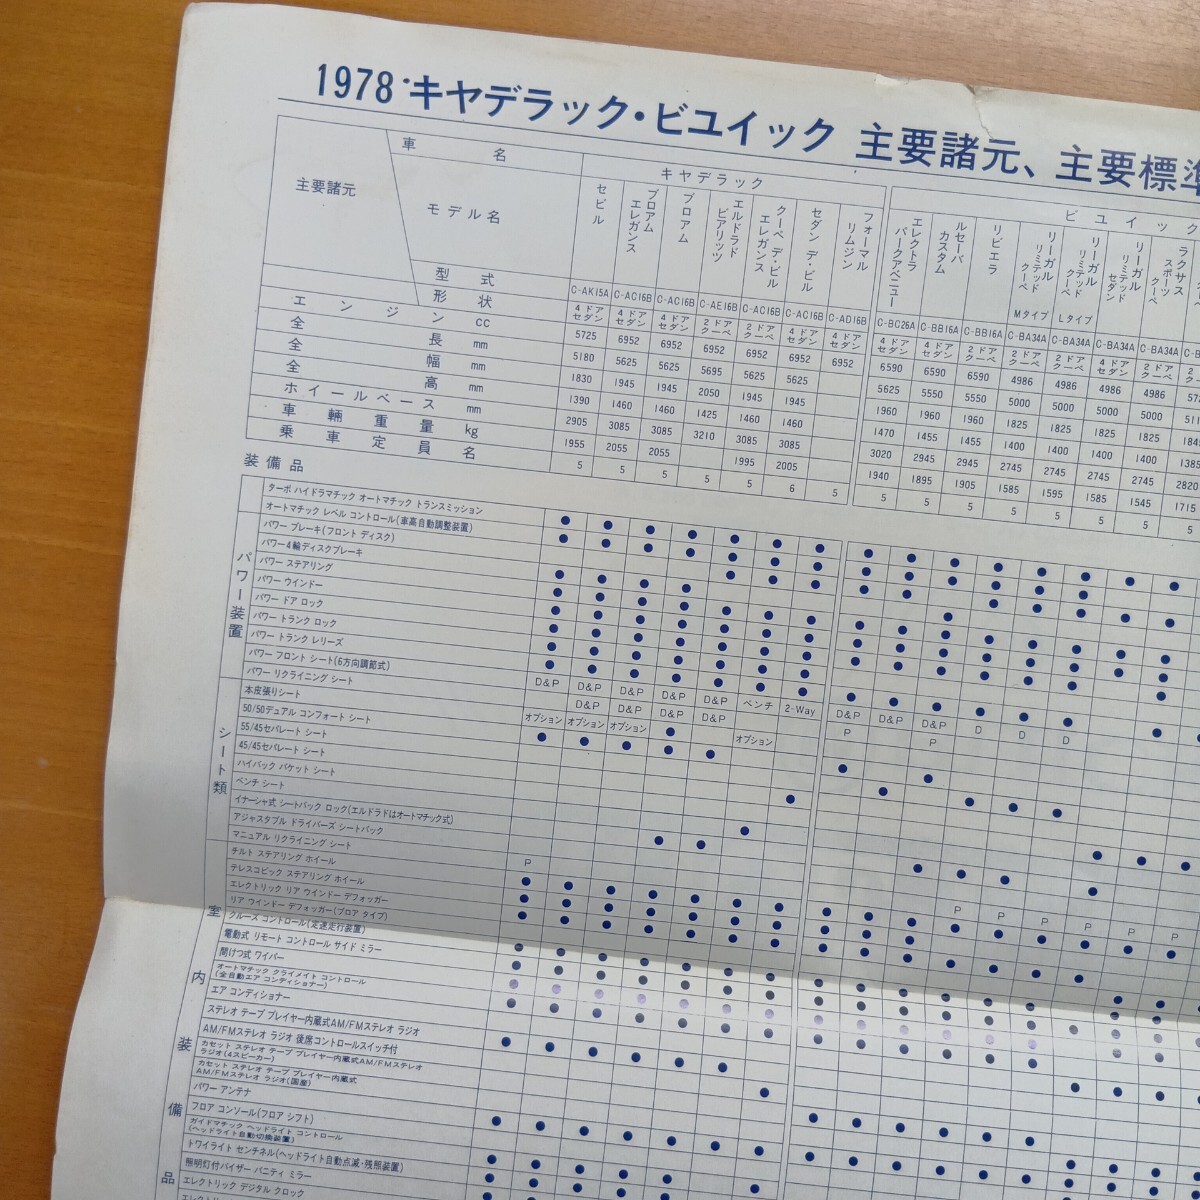 1978・キヤデラック・ビユイック 主要諸元、主要標準
主要諸元
車名
キヤデラック
ビユイック
モデル名
セビル
ブロアム エレガンス
ブロアム
エルドラド ビアリッツ
クーペ・デ・ビル エレガンス
セダン・デ・ビル
フォーマル リムジン
エレクトラ パークアベニュー
ルセーバ カスタム
リビエラ
リーガル リミテッド クーペ Mタイプ
リーガル リミテッド クーペ Lタイプ
リーガル リミテッド セダン
型式 C-AK15A C-AC16B C-AC16B C-AE16B C-AC16B C-AC16B C-AD16B C-BC26A C-BB16A C-BB16A C-BA34A C-BA34A C-BA34A C-BA34A
形状 4ドアセダン 4ドアセダン 4ドアセダン 2ドアクーペ 2ドアクーペ 4ドアセダン 4ドアセダン 4ドアセダン 4ドアセダン 2ドアクーペ 2ドアクーペ 2ドアクーペ 4ドアセダン 2ドアクーペ
エンジン cc 5725 6952 6952 6952 6952 6952 6952 6590 6590 6590 4986 4986 4986 4986
全長 mm 5180 5625 5625 5695 5625 5625 5625 5550 5550 5000 5000 5000 5000
全幅 mm 1830 1945 1945 2050 1945 1945 1960 1960 1960 1825 1825 1825 1825
全高 mm 1390 1460 1460 1425 1460 1460 1470 1455 1455 1400 1400 1400 1400
ホイールベース mm 2905 3085 3085 3210 3085 3085 3020 2945 2945 2745 2745 2745 2745 2820
車輛重量 kg 1955 2055 2055 1995 2005 1940 1895 1905 1585 1595 1585 1545 1715
乗車定員 名 5 5 5 5 5 6 5 5 5 5 5 5 5 5 5
装備品
パワー装置
ターボ ハイドラマチック オートマチック トランスミッション
オートマチック レベル コントロール(車高自動調整装置)
パワー ブレーキ(フロント ディスク)
パワー4輪ディスクブレーキ
パワー ステアリング
パワー ウインドー
パワー ドア ロック
パワー トランク ロック
パワー トランク レリーズ
パワー フロント シート(6方向調節式) D&P D&P D&P D&P D&P ベンチ 2-Way D&P D&P D&P D D D
パワー リクライニング シート D&P D&P D&P D&P P P
シート類
本皮張りシート オプション オプション オプション ● オプション
50/50デュアル コンフォート シート
55/45セパレート シート
45/45セパレート シート
ハイバック バケット シート
ベンチ シート
イナーシャ式 シートバック ロック(エルドラドはオートマチック式)
アジャスタブル ドライバーズ シートバック
マニュアル リクライニング シート P P P P P P P
室内装備品
チルト ステアリング ホイール
テレスコピック ステアリング ホイール
エレクトリック リア ウインドー デフォッガー
リア ウインドー デフォッガー(ブロア タイプ)
クルーズ コントロール(定速走行装置)
電動式 リモート コントロール サイド ミラー
間けつ式 ワイパー
オートマチック クライメイト コントロール
(全自動エア コンディショナー)
エア コンディショナー
ステレオ テープ プレイヤー内蔵式AM/FMステレオ ラジオ
AM/FMステレオ ラジオ 後席コントロールスイッチ付
カセット ステレオ テープ プレイヤー内蔵式AM/FMステレオ
ラジオ(4スピーカー)
カセット ステレオ テープ プレイヤー内蔵式
AM/FMステレオ ラジオ(国産)
パワー アンテナ
フロア コンソール(フロア シフト)
ガイドマチック ヘッドライト コントロール
(ヘッドライト自動切換装置)
トワイライト センチネル(ヘッドライト自動点滅・残照装置)
照明灯付バイザー バニティ ミラー
エレクトリック デジタル クロック